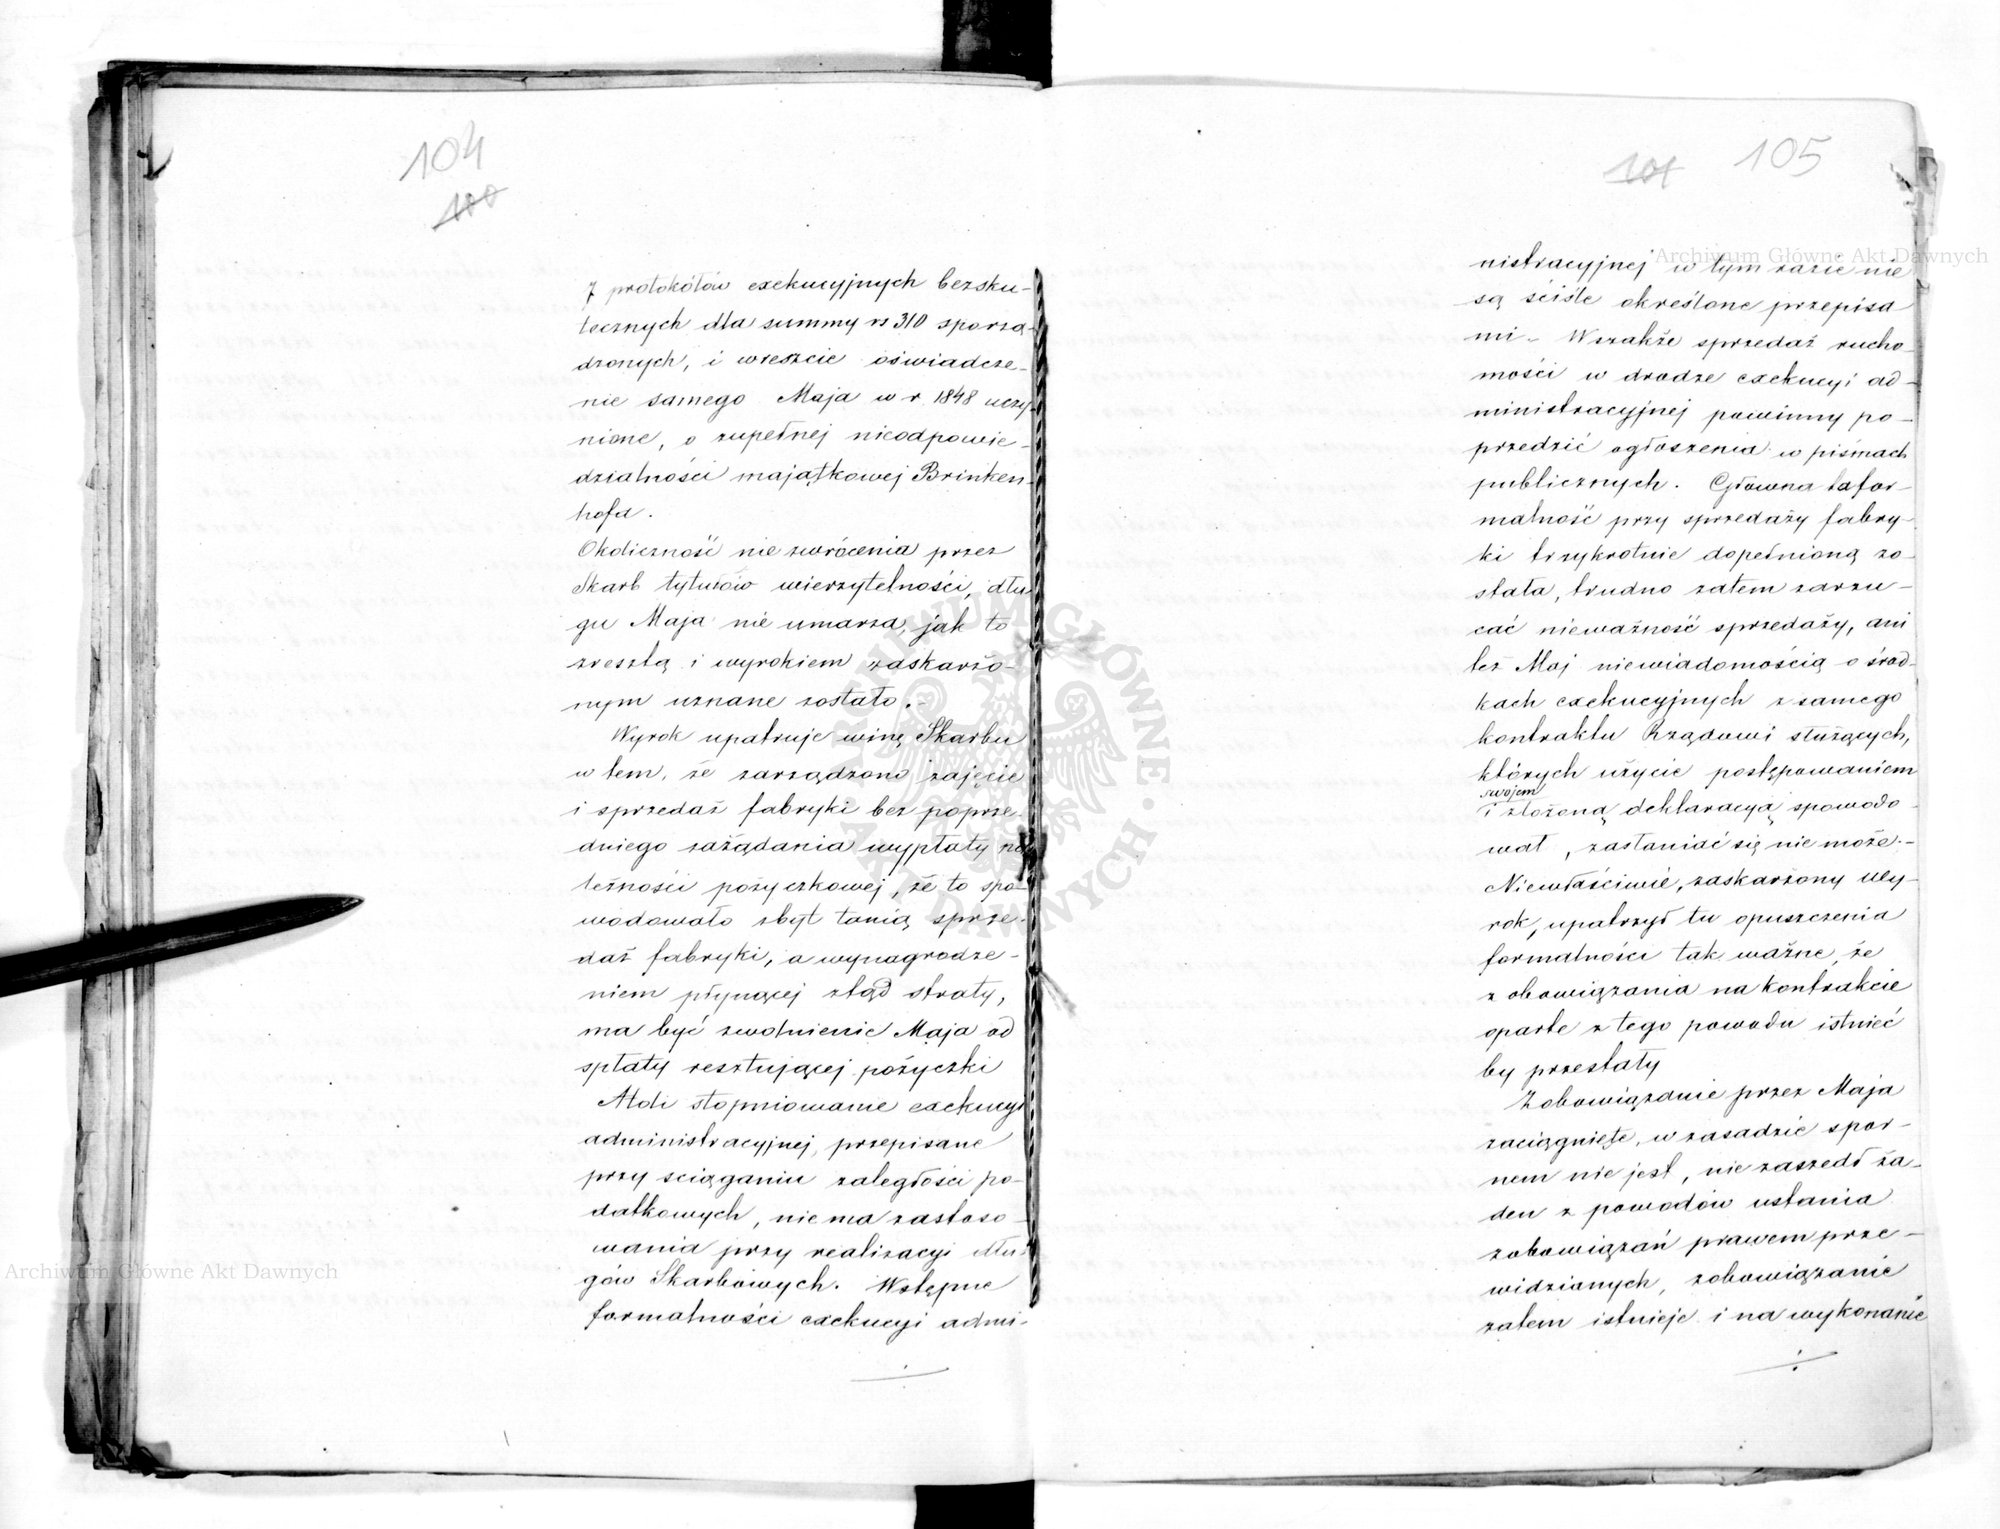 104
100
z protokółów exekucyjnych bezsku-
tecznych dla summy rs 310 sporzą-
dzonych, i wreszcie oświadcze-
nie samego Maja w r. 1848 uczy-
nione, o zupełnej nieodpowie-
dzialności majątkowej Brinken-
hofa.
Okoliczność nie zwrócenia przez
Skarb tytułów wierzytelności, dłu
gu Maja nie umarza, jak to
zresztą i wyrokiem zaskarżo-
nym uznane zostało.-
Wyrok upatruje winę Skarbu
w tem, że zarządzono zajęcie
i sprzedaż fabryki bez poprze-
dniego zażądania wypłaty na
leżności pożyczkowej, że to spo-
wodowało zbyt tanią sprze-
daż fabryki, a wynagrodze-
niem płynącej ztąd straty,
ma być zwolnienie Maja od
spłaty resztującej pożyczki
Atoli stopniowanie exekucyi
administracyjnej, przepisane
przy ściąganiu zaległości po-
datkowych, nie ma zastoso-
wania przy realizacyi dłu-
gów Skarbowych. Wstępne
formalności exekucyi admi-
101 105
nistracyjnej w tym razie nie
są ściśle określone przepisa
mi.- Wszakże sprzedaż rucho-
mości w drodze exekucyi ad-
ministracyjnej powinny po-
przedzić ogłoszenia w pismach
publicznych. Główna ta for-
malność przy sprzedaży fabry-
ki trzykrotnie dopełnioną zo-
stała, trudno zatem zarzu-
cać nieważność sprzedaży, ani
też Maj niewiadomością o środ-
kach exekucyjnych z samego
kontraktu Rządowi służących,
których użycie postępowaniem
swojem
i złożoną deklaracyą spowodo-
wał, zasłaniać się nie może.-
Niewłaściwie, zaskarżony wy-
rok, upatrzył tu opuszczenia
formalności tak ważne, że
z obowiązania na kontrakcie
oparte z tego powodu istnieć
by przestały
Zobowiązanie przez Maja
zaciągnięte, w zasadzie spor-
nem nie jest, nie zaszedł ża-
den z powodów ustania
zobowiązań prawem prze-
widzianych, zobowiązanie
zatem istnieje i na wykonanie
Archiwum Główne Akt Dawnych
Archiwum Główne Akt Dawnych
ARCHIWUM GŁÓWNE AKT DAWNYCH